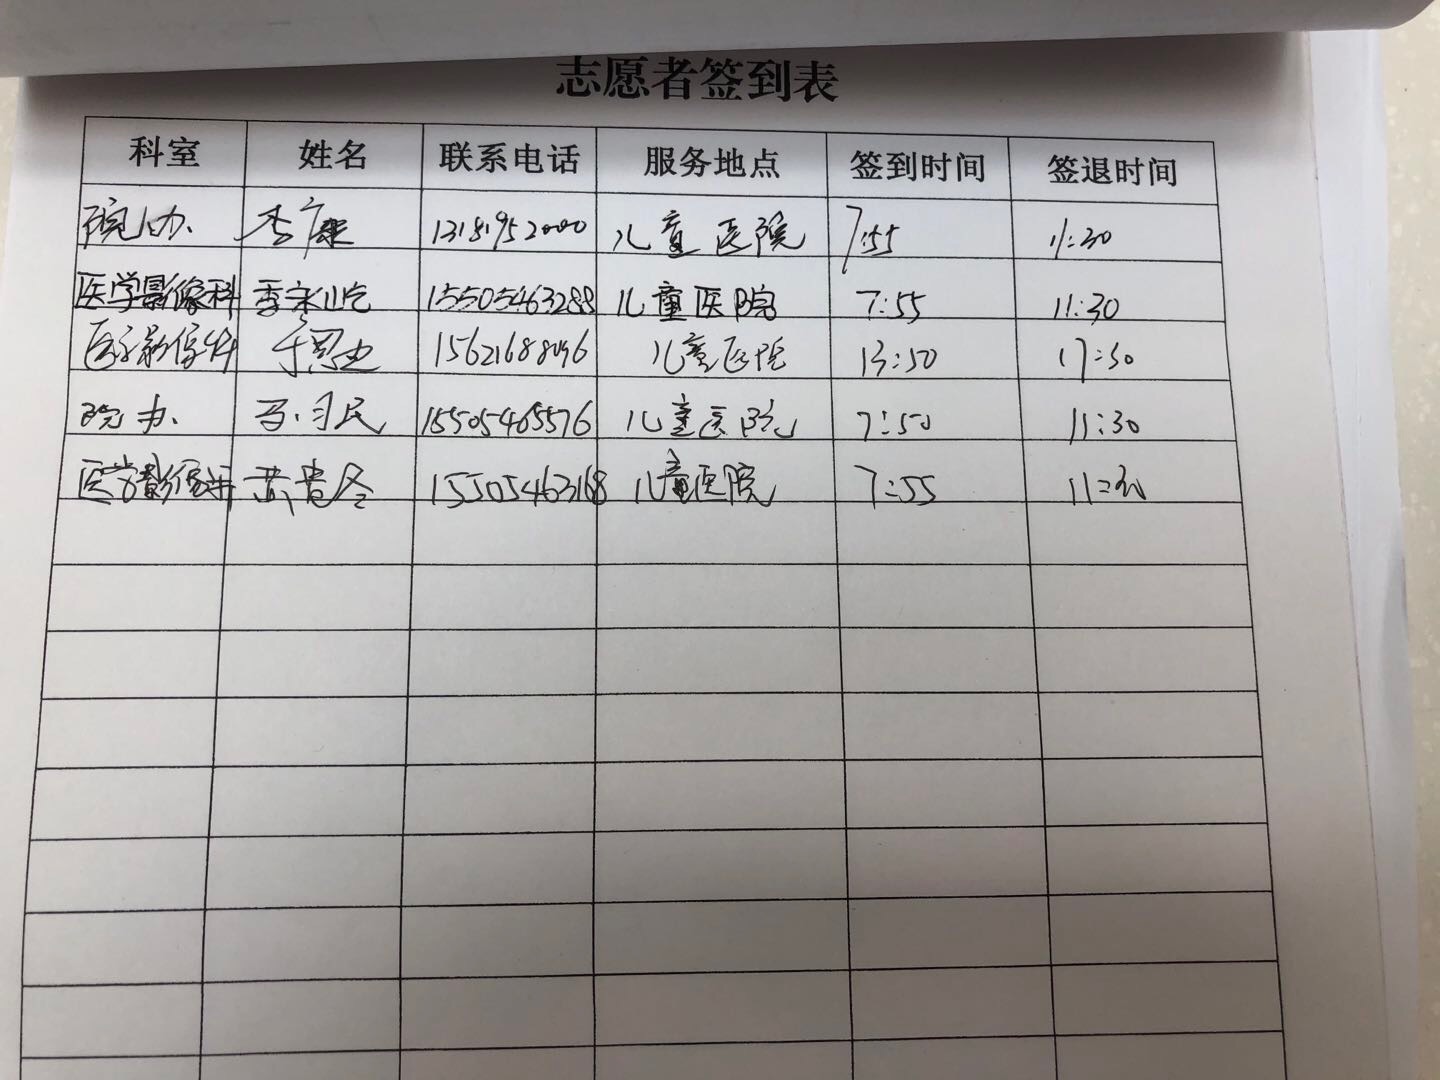 志愿者签到表
科室 姓名 联系电话 服务地点 签到时间 签退时间
院办 李康 13181952000 儿童医院 7:55 11:30
医学影像科 15505463288 儿童医院 7:55 11:30
医学影像科 15621688096 儿童医院 13:50 17:30
院办 15505465576 儿童医院 7:50 11:30
医学影像科 黄贵冬 15505463168 儿童医院 7:55 11:30